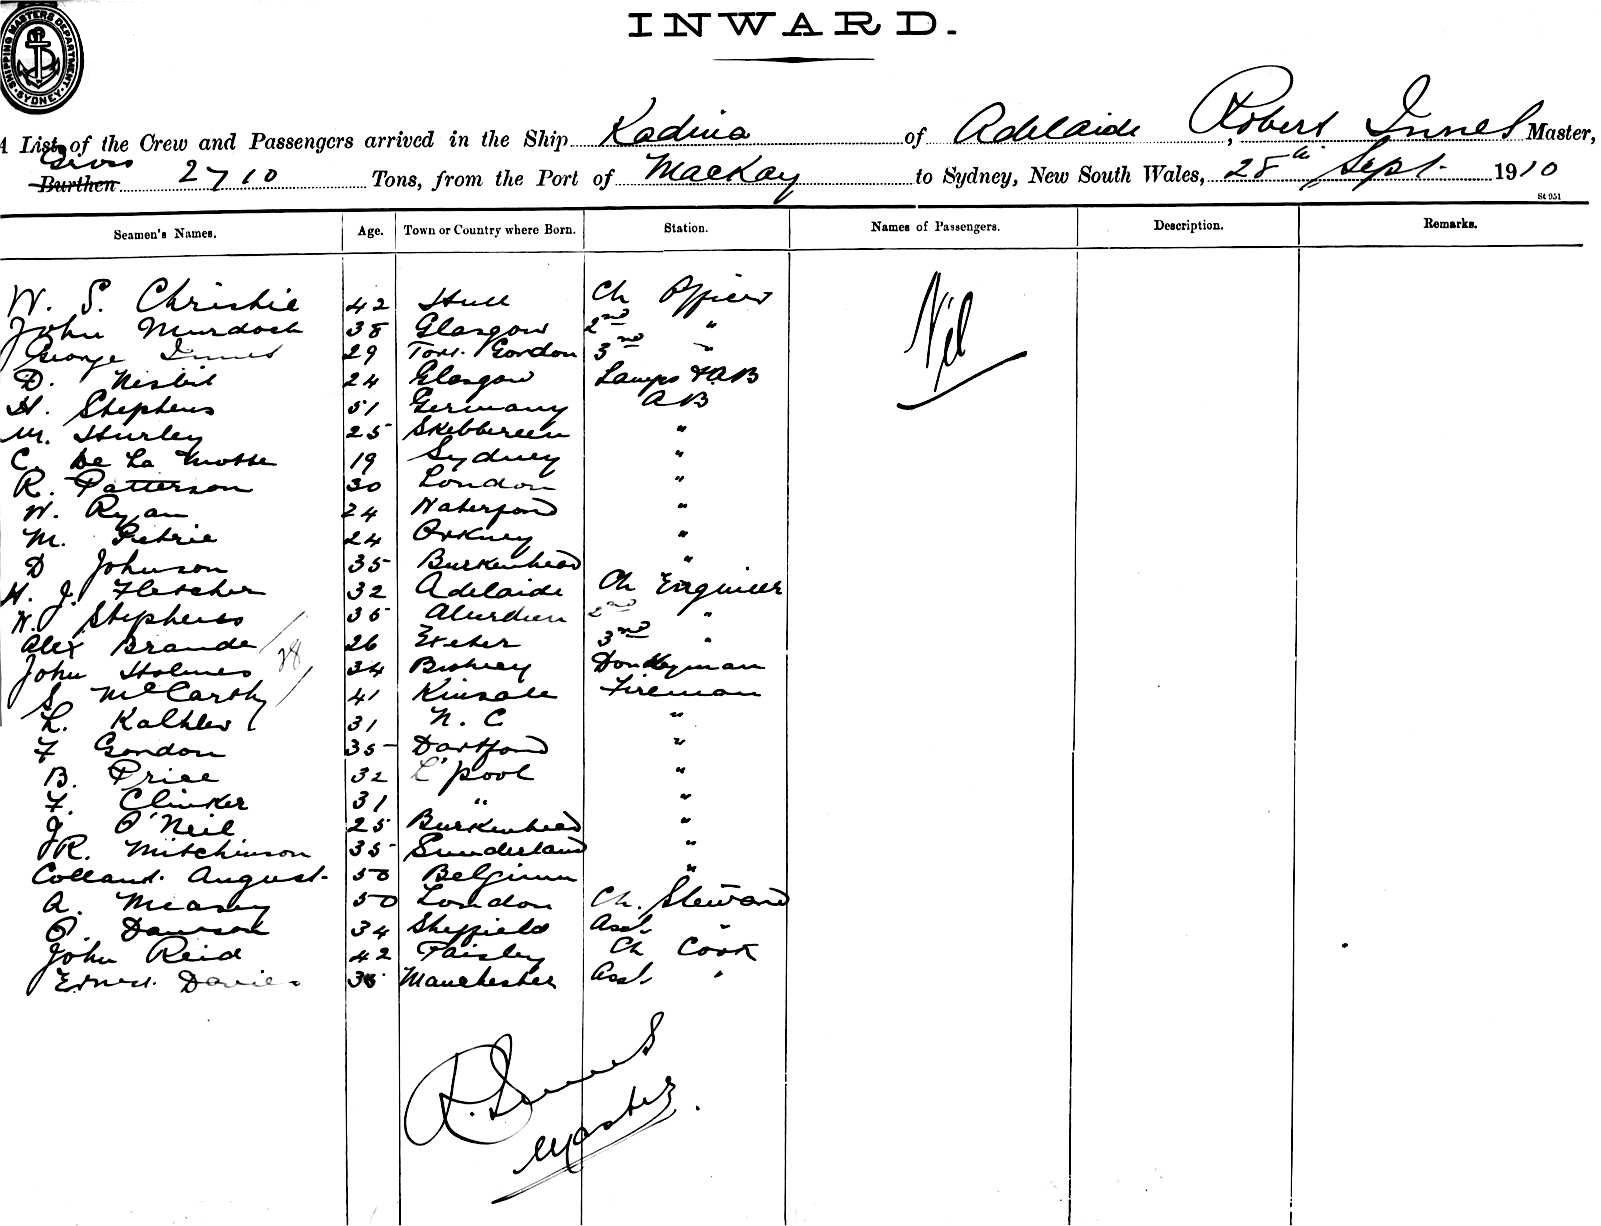 INWARD.
SHIPPING MASTERS DEPARTMENT. SYDNEY.
A List of the Crew and Passengers arrived in the Ship Kadina of Adelaide, Robert Innes Master,
Gross
Burthen 2710 Tons, from the Port of Mackay to Sydney, New South Wales, 28th Sept. 1910
St 951
Seamen's Names. Age. Town or Country where Born. Station. Names of Passengers. Description. Remarks.
W. S. Christie 42 Hull Ch Officer Nil
John Murdoch 38 Glasgow 2nd "
George Innes 29 Gordon 3rd "
D. Nisbit 24 Glasgow Lamps & AB
H. Stephens 51 Germany AB
M. Hurley 25 Skebbereen "
C. De La Motte 19 Sydney "
R. Patterson 30 London "
W. Ryan 24 Waterford "
M. Petrie 24 Orkney "
D Johnson 35 Burkenhead "
H. J. Fletcher 32 Adelaide Ch Engineer
W. Stephens 35 Aberdeen 2nd "
Alex Brande 26 Exeter 3rd "
28
John Holmes 34 Donkeyman
S McCarthy 41 Kinsale Fireman
L. 31 N. C "
F Gordon 35 Dartford "
B. Price 32 L'pool "
F. Clinker 31 " "
J. O'Neil 25 Burkenhead "
R. Mitchinson 35 Sunderland "
Colland. August. 50 Belgium "
A. Measey 50 London Ch. Steward
P. Dawson 34 Sheffield Asst. "
John Reid 42 Paisley Ch Cook
Ernest. Davies 35 Manchester Asst. "
R. Innes
Master.